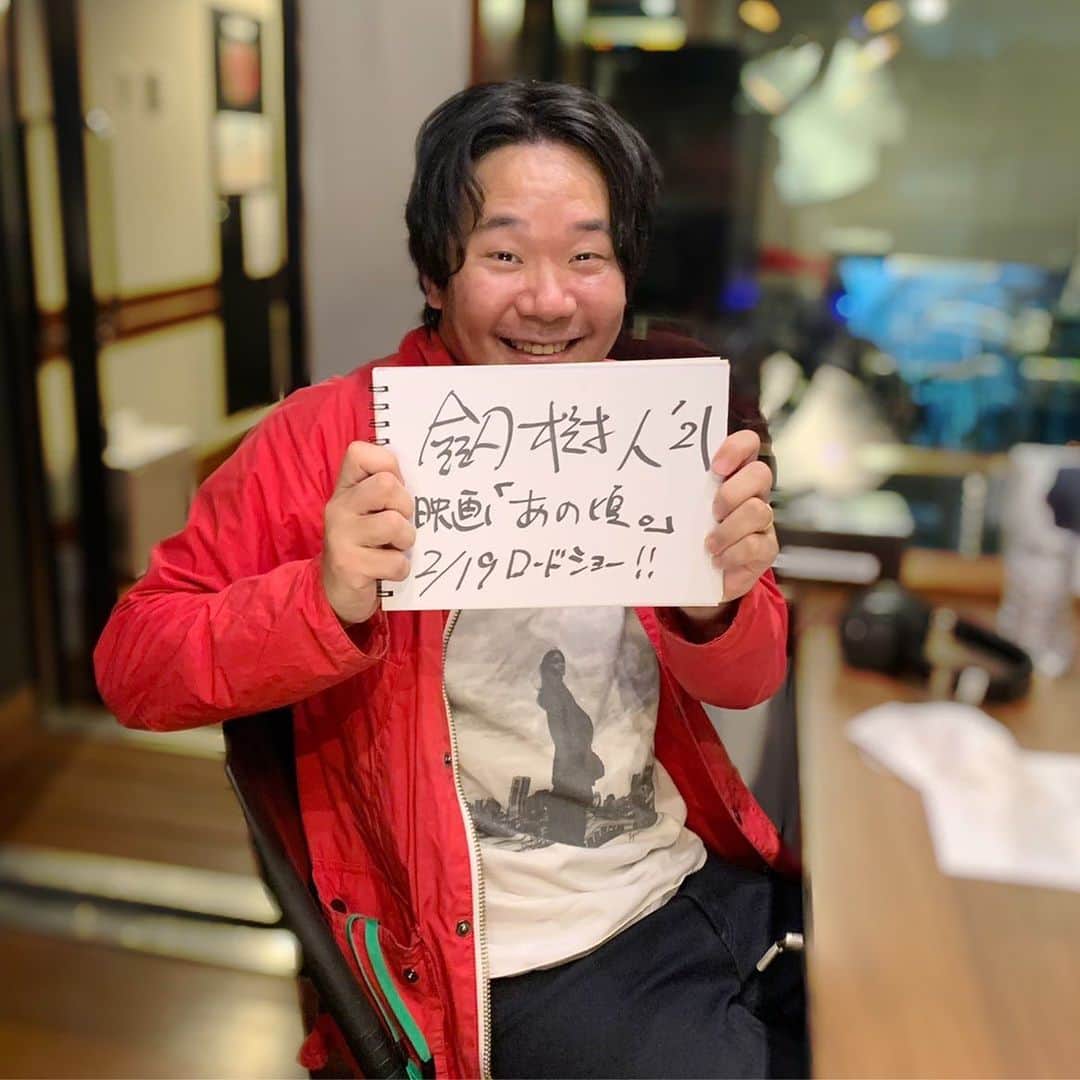 釼樹人'21
映画「あの頃。」
2/19ロードショー!!